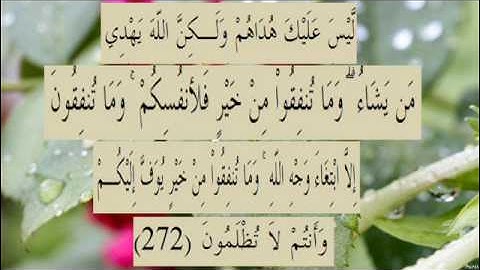 لَّيْسَ عَلَيْكَ هُدَاهُمْ وَلَـكِنَّ اللّهَ يَهْدِي
مَن يَشَاءُ ۗ وَمَا تُنفِقُواْ مِنْ خَيْرٍ فَلأنفُسِكُمْ ۚ وَمَا تُنفِقُونَ
إِلاَّ ابْتِغَاءَ وَجْهِ اللّهِ ۚ وَمَا تُنفِقُواْ مِنْ خَيْرٍ يُوَفَّ إِلَيْكُـمْ
وَأَنتُمْ لاَ تُظْلَمُونَ (272)